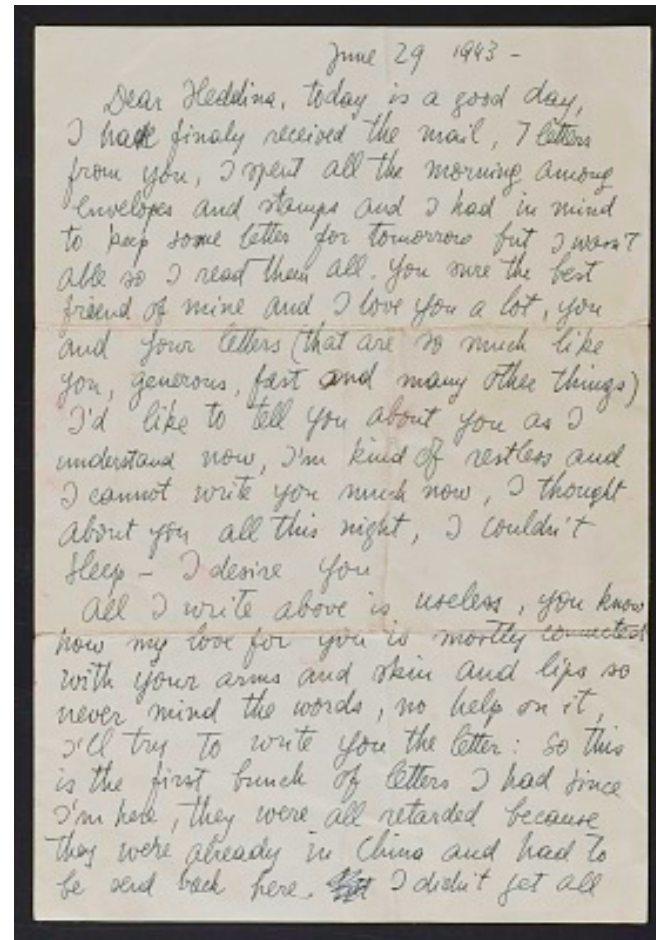 June 29 1943 -
Dear Heddina, today is a good day,
I have finaly received the mail, 7 letters
from you, I spent all the morning among
envelopes and stamps and I had in mind
to keep some letter for tomorrow but I wasn't
able so I read them all. You sure the best
friend of mine and I love you a lot, you
and your letters (that are so much like
you, generous, fast and many other things)
I'd like to tell you about you as I
understand now, I'm kind of restless and
I cannot write you much now, I thought
about you all this night, I couldn't
sleep - I desire you
All I write above is useless, you know
how my love for you is mostly connected
with your arms and skin and lips so
never mind the words, no help on it,
I'll try to write you the letter: so this
is the first bunch of letters I had since
I'm here, they were all retarded because
they were already in China and had to
be send back here. I didn't get all